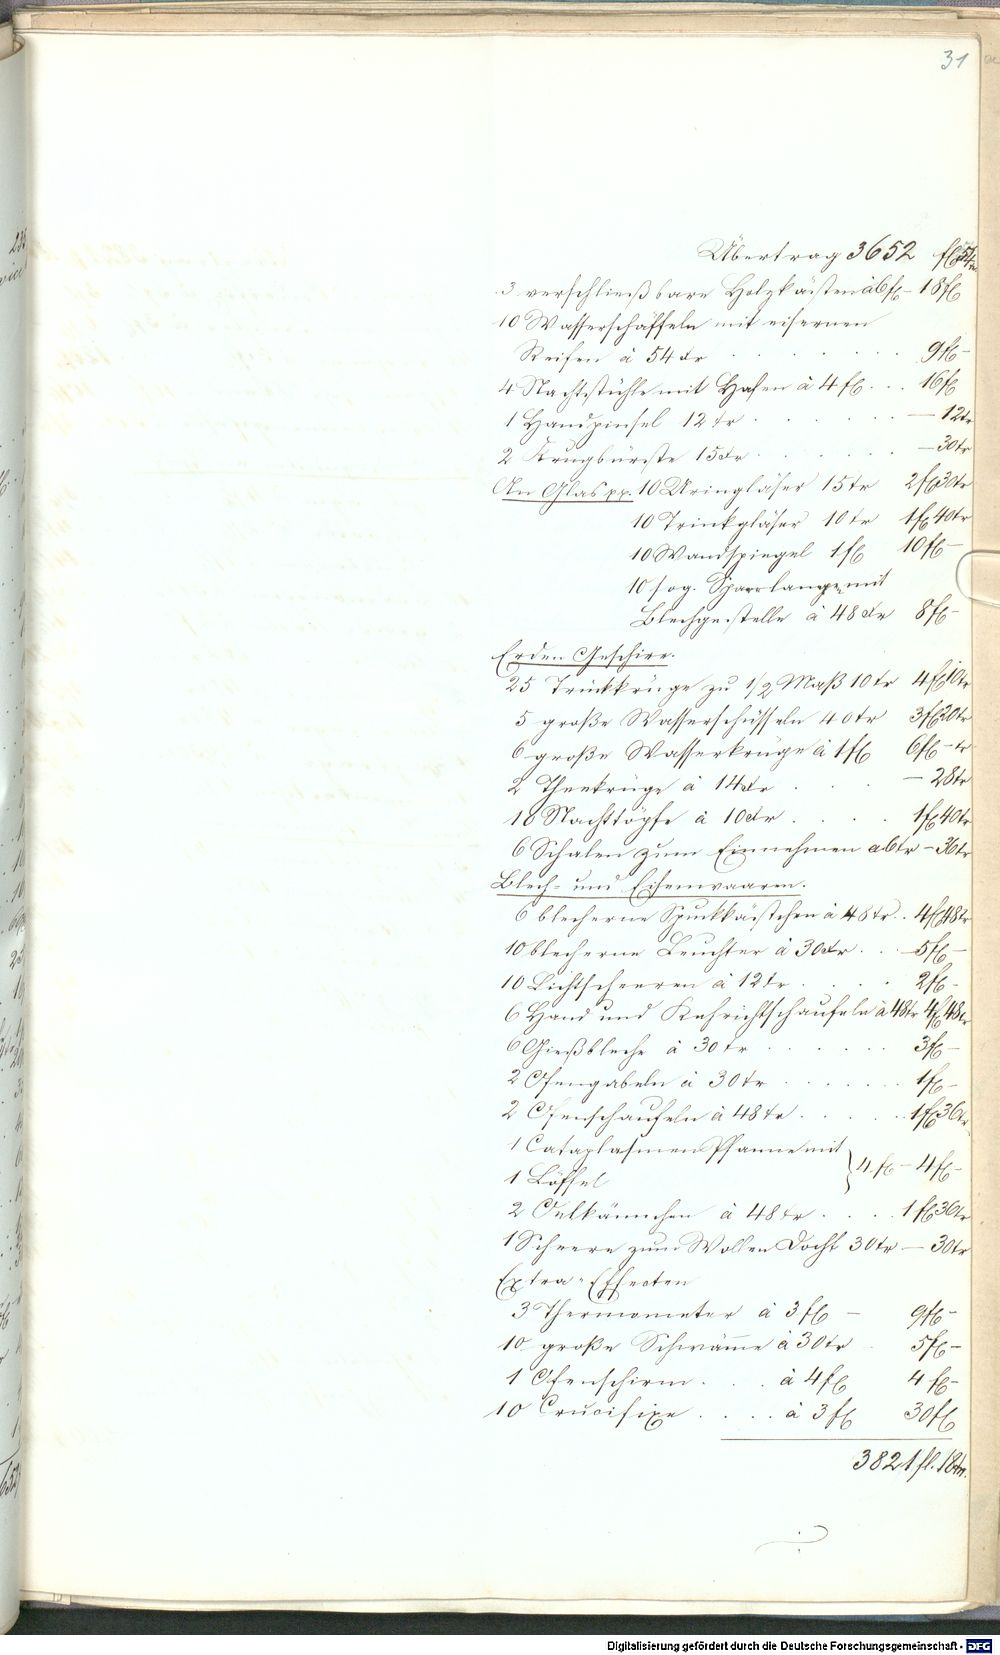 31
Übertrag 3652 fl 54 kr
3 verschließbare Holzkästen à 6 fl – 18 fl
10 Wasserschäffeln mit eisernen
Reifen à 54 kr . . . . . . 9 fl –
4 Nachtstühle mit Hafen à 4 fl . . . 16 fl
1 Handpinsel 12 kr . . . . . – 12 kr
2 Krugbürste 15 kr . . . . . – 30 kr
An Glas pp. 10 Uringläser 15 kr 2 fl 30 kr
10 Trinkgläser 10 kr 1 fl 40 kr
10 Wandspiegel 1 fl 10 fl –
10 sog. mit
Blechgestelle à 48 kr 8 fl –
Erden Geschirr.
25 Trinkkrüge zu 1/2 Maß 10 kr 4 fl 10 kr
5 große Wasserschüsseln 40 kr 3 fl 20 kr
6 große Wasserkrüge à 1 fl 6 fl – kr
2 Theekrüge à 14 kr . . . – 28 kr
10 Nachttöpfe à 10 kr . . . . 1 fl 40 kr
6 Schalen zum Einnehmen à 6 kr – 36 kr
Blech- und Eisenwaaren.
6 blecherne Spuckkästchen à 48 kr . . 4 fl 48 kr
10 blecherne Leuchter à 30 kr . . . 5 fl –
10 Lichtscheeren à 12 kr . . . . 2 fl –
6 Hand und Kehrichtschaufeln à 48 kr 4 fl 48 kr
6 Gießbleche à 30 kr . . . . . 3 fl –
2 Ofengabeln à 30 kr . . . . . 1 fl –
2 Ofenschaufeln à 48 kr . . . . . 1 fl 36 kr
1 Cataplasmen Pfanne mit
1 Löffel } 4 fl – 4 fl –
2 Oelkännchen à 48 kr . . . . 1 fl 36 kr
1 Scheere zum Wollen Docht 30 kr – 30 kr
Extra-Effecten
3 Thermometer à 3 fl – 9 fl –
10 große Schwämme à 30 kr . 5 fl –
1 Ofenschirm . . . à 4 fl 4 fl –
10 Crucifixe . . . . à 3 fl 30 fl
3821 fl. 18 kr.
Digitalisierung gefördert durch die Deutsche Forschungsgemeinschaft - DFG